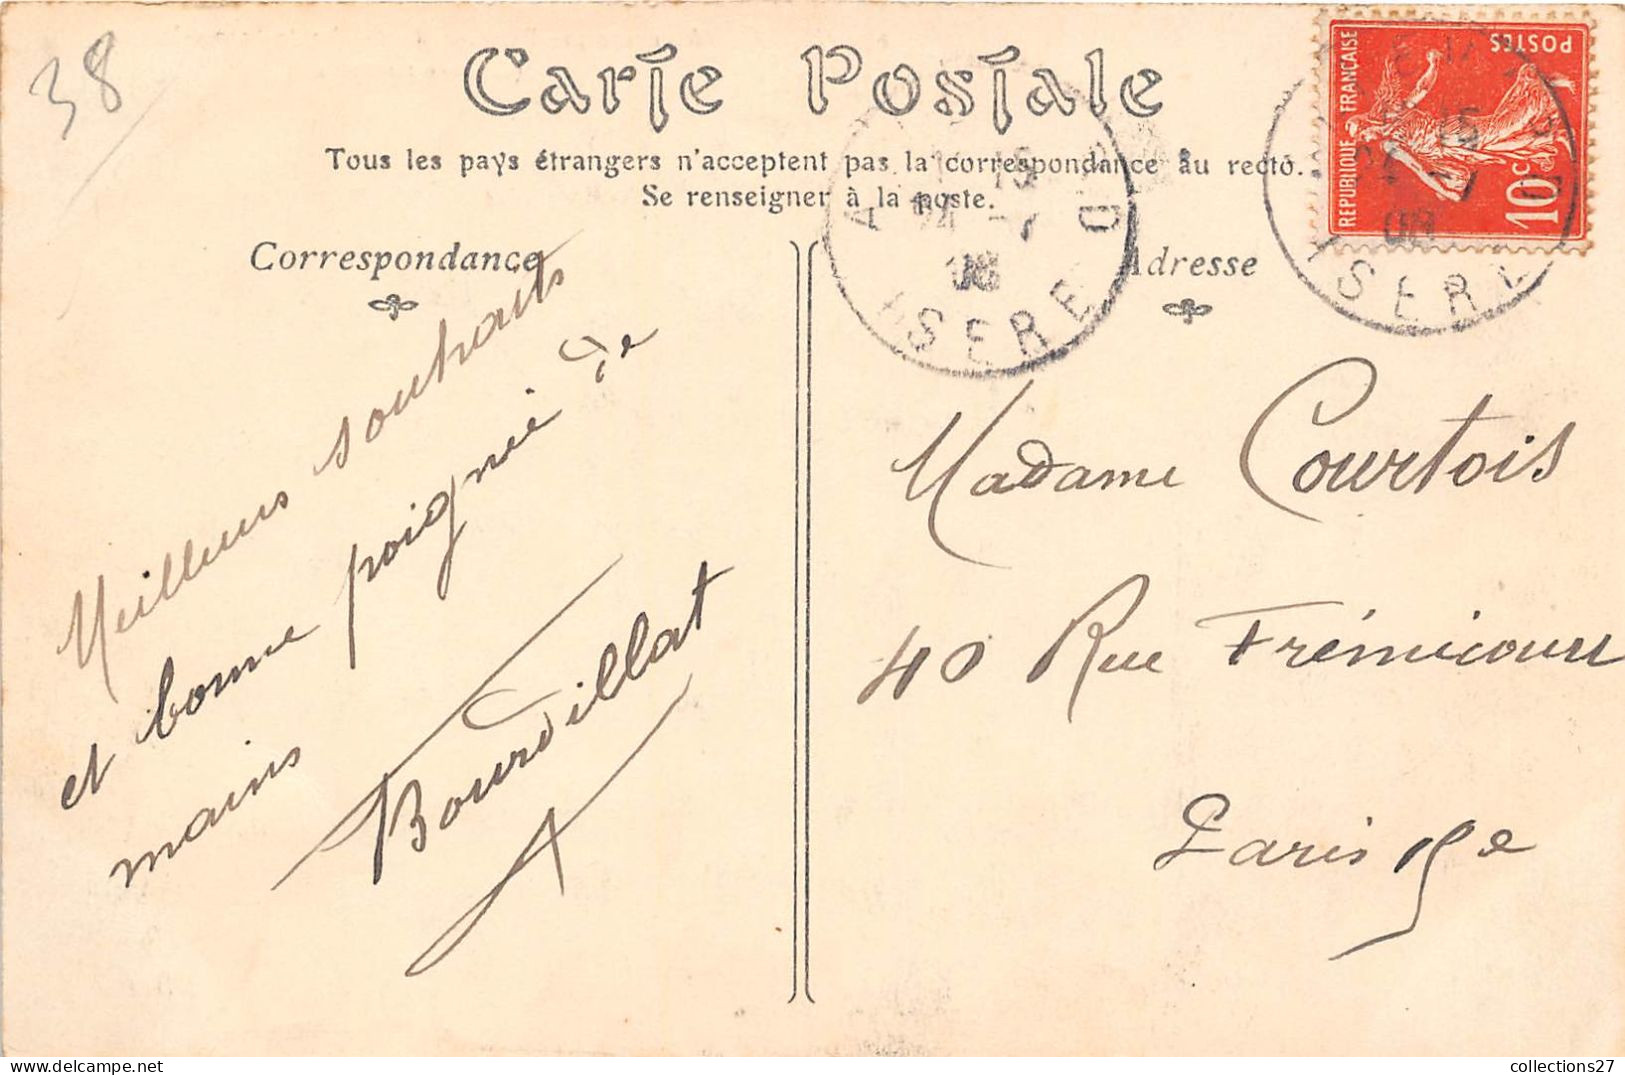 38
Carte Postale
Tous les pays étrangers n'acceptent pas la correspondance au recto.
Se renseigner à la poste.
Correspondance
Adresse
REPUBLIQUE FRANÇAISE
POSTES
10c
ISERE
15
24 -7
08
ISERE
15
-7
08
Meilleurs souhaits
et bonne poignée de
mains
Bourdillat
Madame Courtois
40 Rue Frémicourt
Paris 15e
collections27